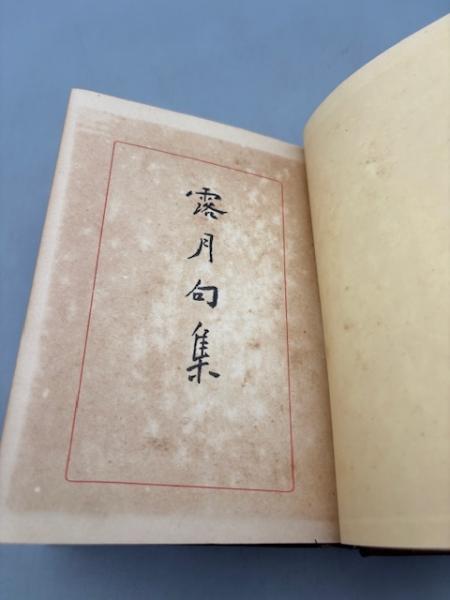 露月句集